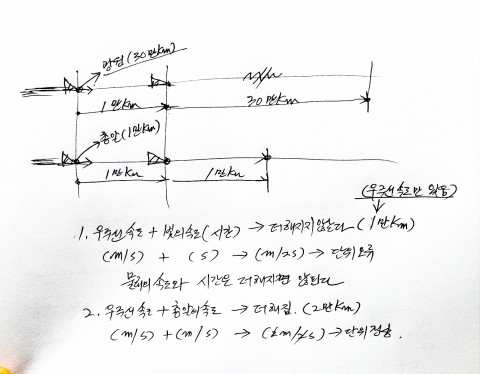 광원(30만Km)
1만Km
30만Km
총알(1만Km)
1만Km
1만Km
(우주선속도만 있음)
1. 우주선속도 + 빛의속도(시간) → 더해지지않는다 (1만Km)
(m/s) + (s) → (m/2s) → 단위오류
물체의속도와 시간은 더해지면 않된다
2. 우주선속도 + 총알의속도 → 더해짐. (2만Km)
(m/s) + (m/s) → (2m/s) → 단위정상.